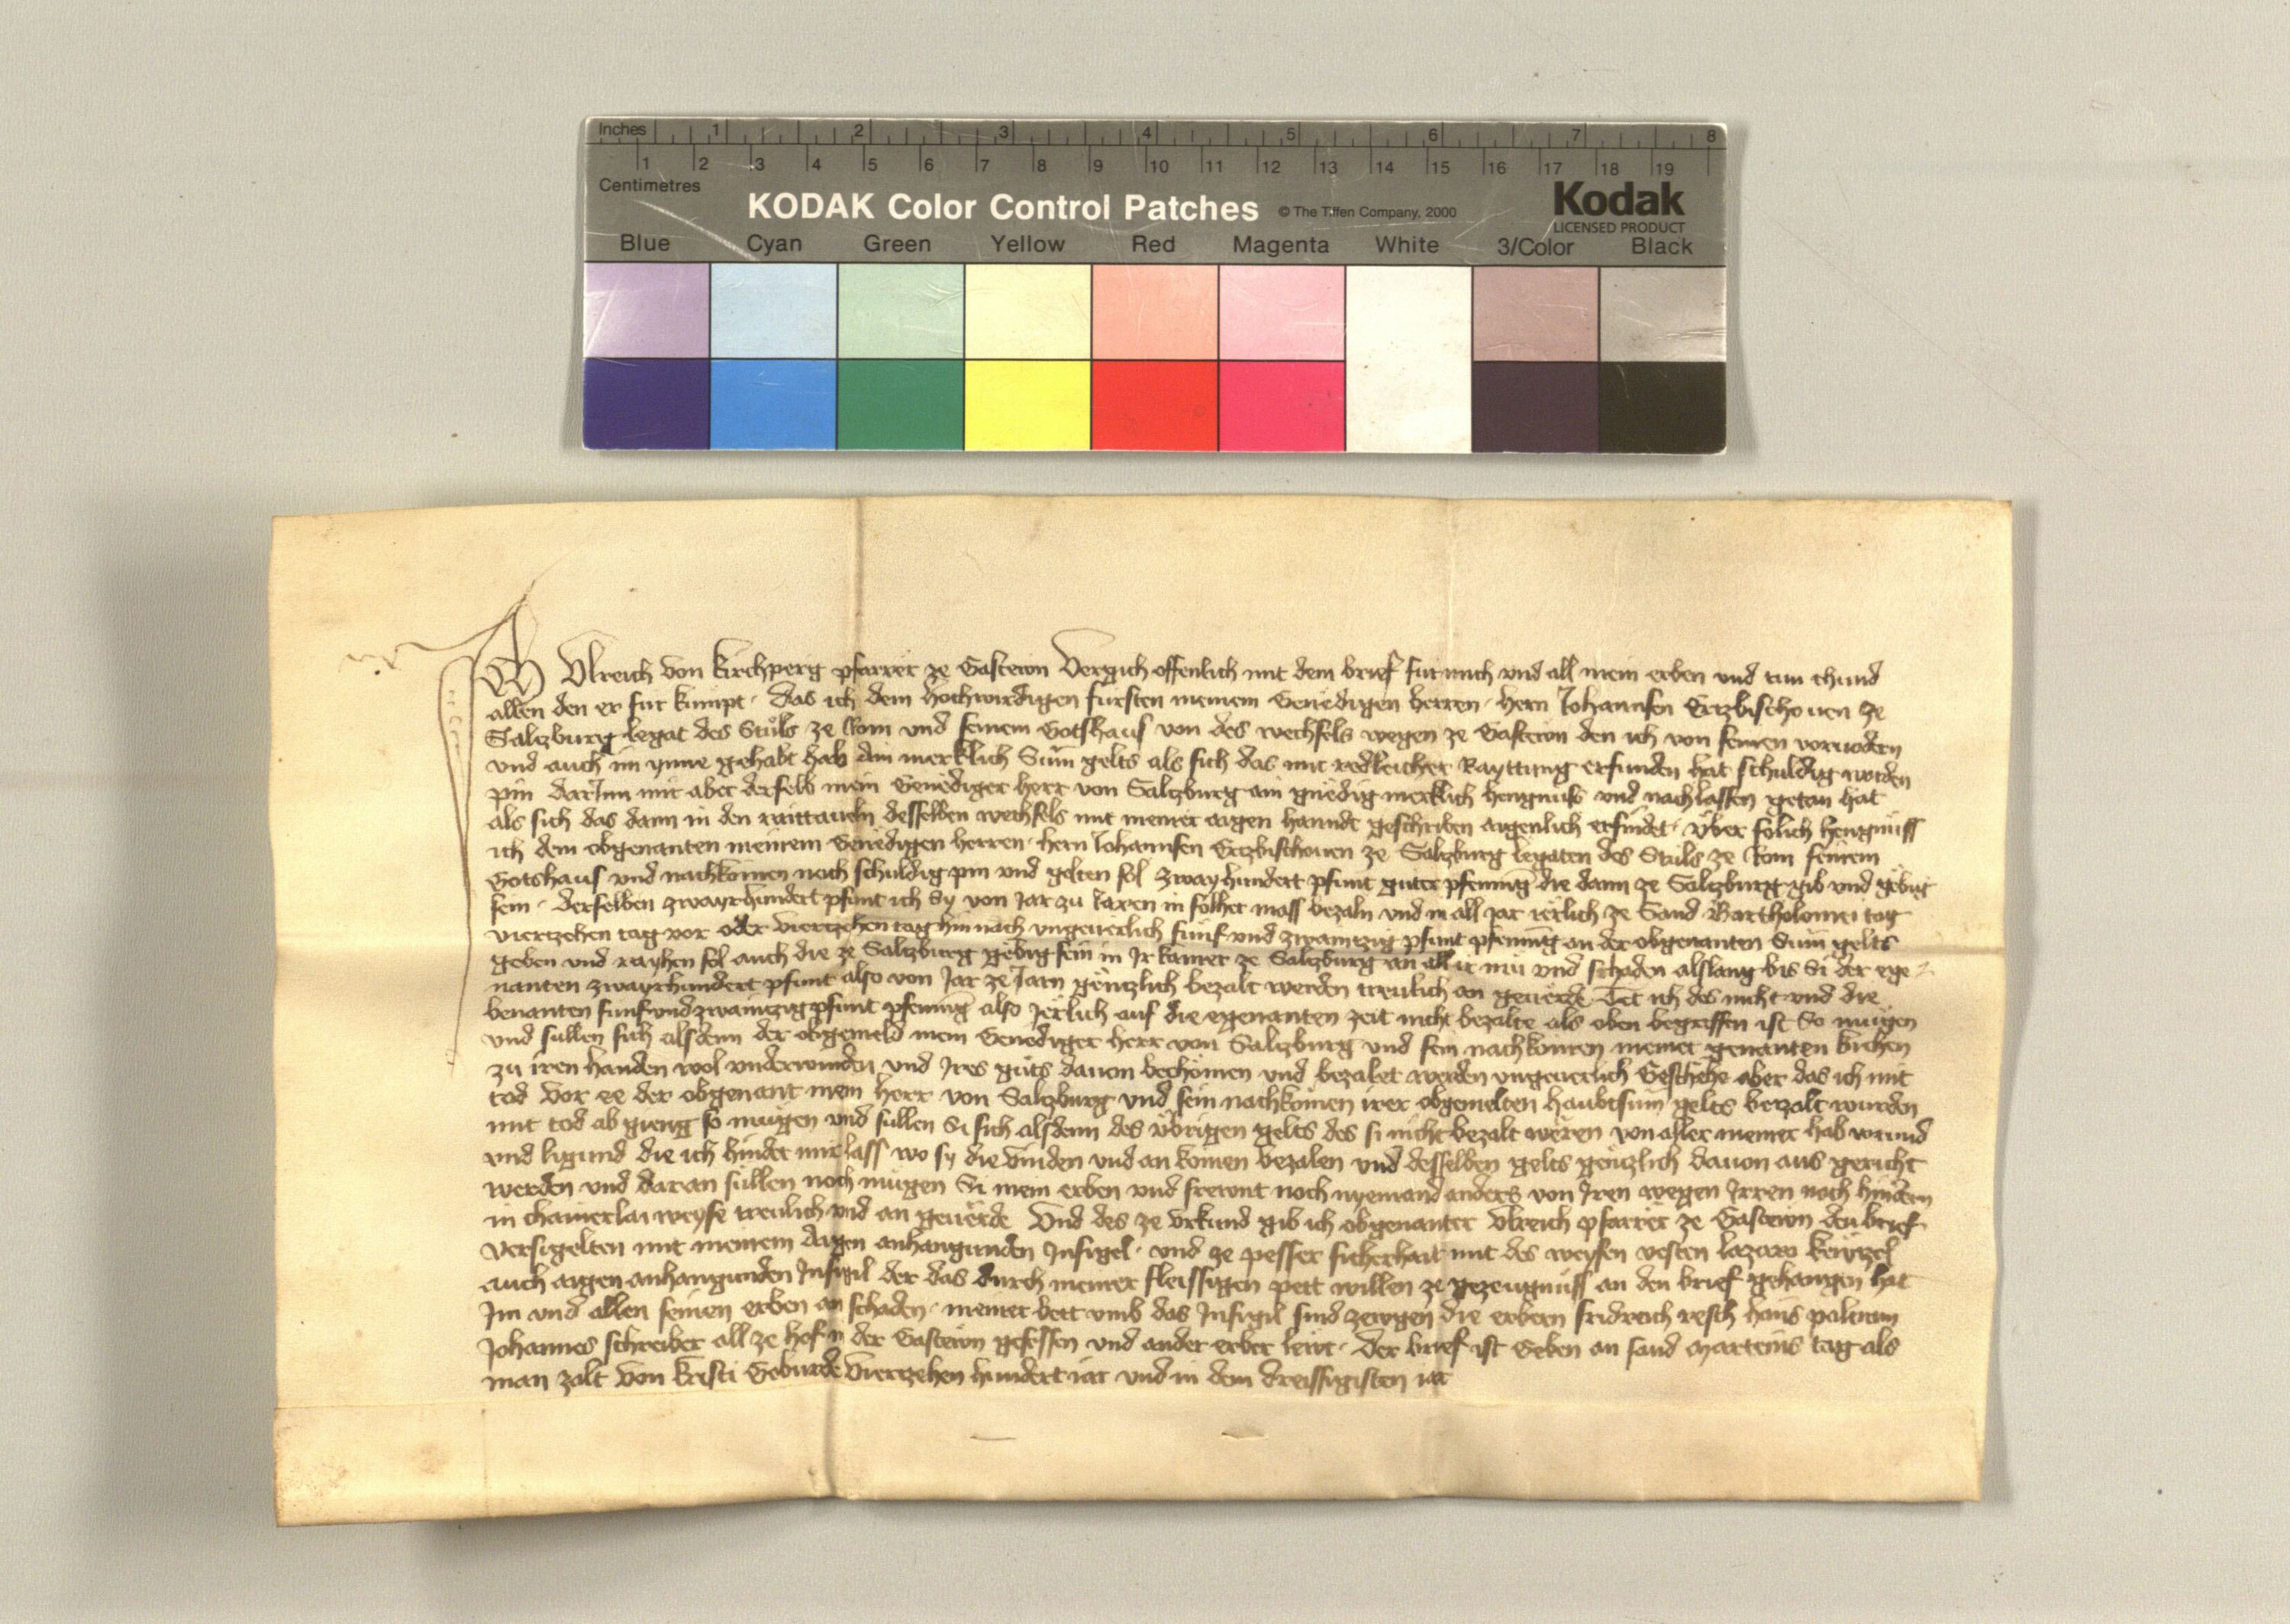 Inches 1 2 3 4 5 6 7 8
1 2 3 4 5 6 7 8 9 10 11 12 13 14 15 16 17 18 19
Centimetres
KODAK Color Control Patches © The Tiffen Company, 2000 Kodak
LICENSED PRODUCT
Blue Cyan Green Yellow Red Magenta White 3/Color Black
Ich Vlreich von kirchperg pfarrer ze Gastewn Vergich offenlich mit dem brief fur mich vnd all mein erben vnd tun chund
allen den er fur kumpt · das ich dem hochwirdigen fursten meinem Genedigen herren · hern Johannsen Ertzbischouen ze
Saltzburg legat des Stuls ze Rom vnd seinem Gotshaus von des wechsels wegen ze Gastewn den ich von seinen voruodern
vnd auch im ynne gehabt hab ain merklich Sum gelts als sich das mit redleicher Rayttung erfunden hat schuldig worden
pin darInn mir aber derselb mein Genediger herr von Saltzburg ain gnedig merklich hengnuss vnd nachlassen getan hat
als sich das dann in den raittaueln desselben wechsels mit meiner aigen hanndt geschriben aigenlich erfindet · Vber solich hengnuss
ich dem obgenanten meinem Genedigen herren · hern Johannsen Ertzbischouen ze Saltzburg legaten des Stuls ze Rom seinem
Gotshaus vnd nachkomen noch schuldig pin vnd gelten sol zwayhundert pfunt guter pfenning die dann ze Saltzburg gib vnd gebig
sein · derselben zwayrhundert pfunt ich Sy von Jar zu Jaren in solher mass bezaln vnd in all Jar ierlich ze Sand Bartholomei tag
viertzehen tag vor oder viertzehen tag hin nach vngeuerlich funf vnd zwaintzig pfunt pfenning an der obgenanten Sum gelts
geben vnd raychen sol auch die ze Saltzburg gebig sein in Jr kamer ze Saltzburg an all ir mu vnd schaden alslang bis Si der ege
nanten zwayrhundert pfunt also von Jar ze Jarn gentzlich bezalt werden treulich an geuerde Tet ich des nicht vnd die
benanten funfvndzwaintzig pfunt pfening also Jerlich auf die egenanten zeit nicht bezalte als oben begriffen ist So mugen
vnd sullen sich alsdenn der obgemeld mein Genediger herr von Saltzburg vnd sein nachkomen meiner genanten kirchen
zu iren handen wol vnderwinden vnd Jres guts dauon bechomen vnd bezalet werden vngeuerlich Geschehe aber das ich mit
tod vor ee der obgenant mein herr von Saltzburg vnd sein nachkomen irer obgemelten haubtsum gelts bezalt wurden
mit tod ab gieng so mugen vnd sullen Si sich alsdenn des vbrigen gelts des si nicht bezalt weren von aller meiner hab varund
vnd ligund die ich hinder mir lass wo sy die vinden vnd an komen bezalen vnd desselben gelts gentzlich dauon aus gericht
werden vnd daran sullen noch mugen Si mein erben vnd frewnt noch nyemand anders von Jren wegen Jrren noch hindern
in chainerlai weyse treulich vnd an geuerde Vnd des ze vrkund gib ich obgenanter Vlreich pfarrer ze Gastewn den brief
versigelten mit meinem aigen anhangunden Jnsigel · vnd ze pesser sicherhait mit des weysen vesten lazarn
auch aigen anhangunden Jnsigil der das durch meiner fleissigen pett willen ze gezeugnuss an den brief gehangen hat
Jm vnd allen seinen erben an schaden · meiner bett vmb das Jnsigil sind zewgen die erbern fridreich resch hans
Johannes schreiber all ze hof in der Gastewn gesessen vnd ander erber lewt · Der brief ist Geben an sand Marteins tag als
man zalt von kristi Geburde viertzehen hundert iar vnd in dem dreissigisten iar